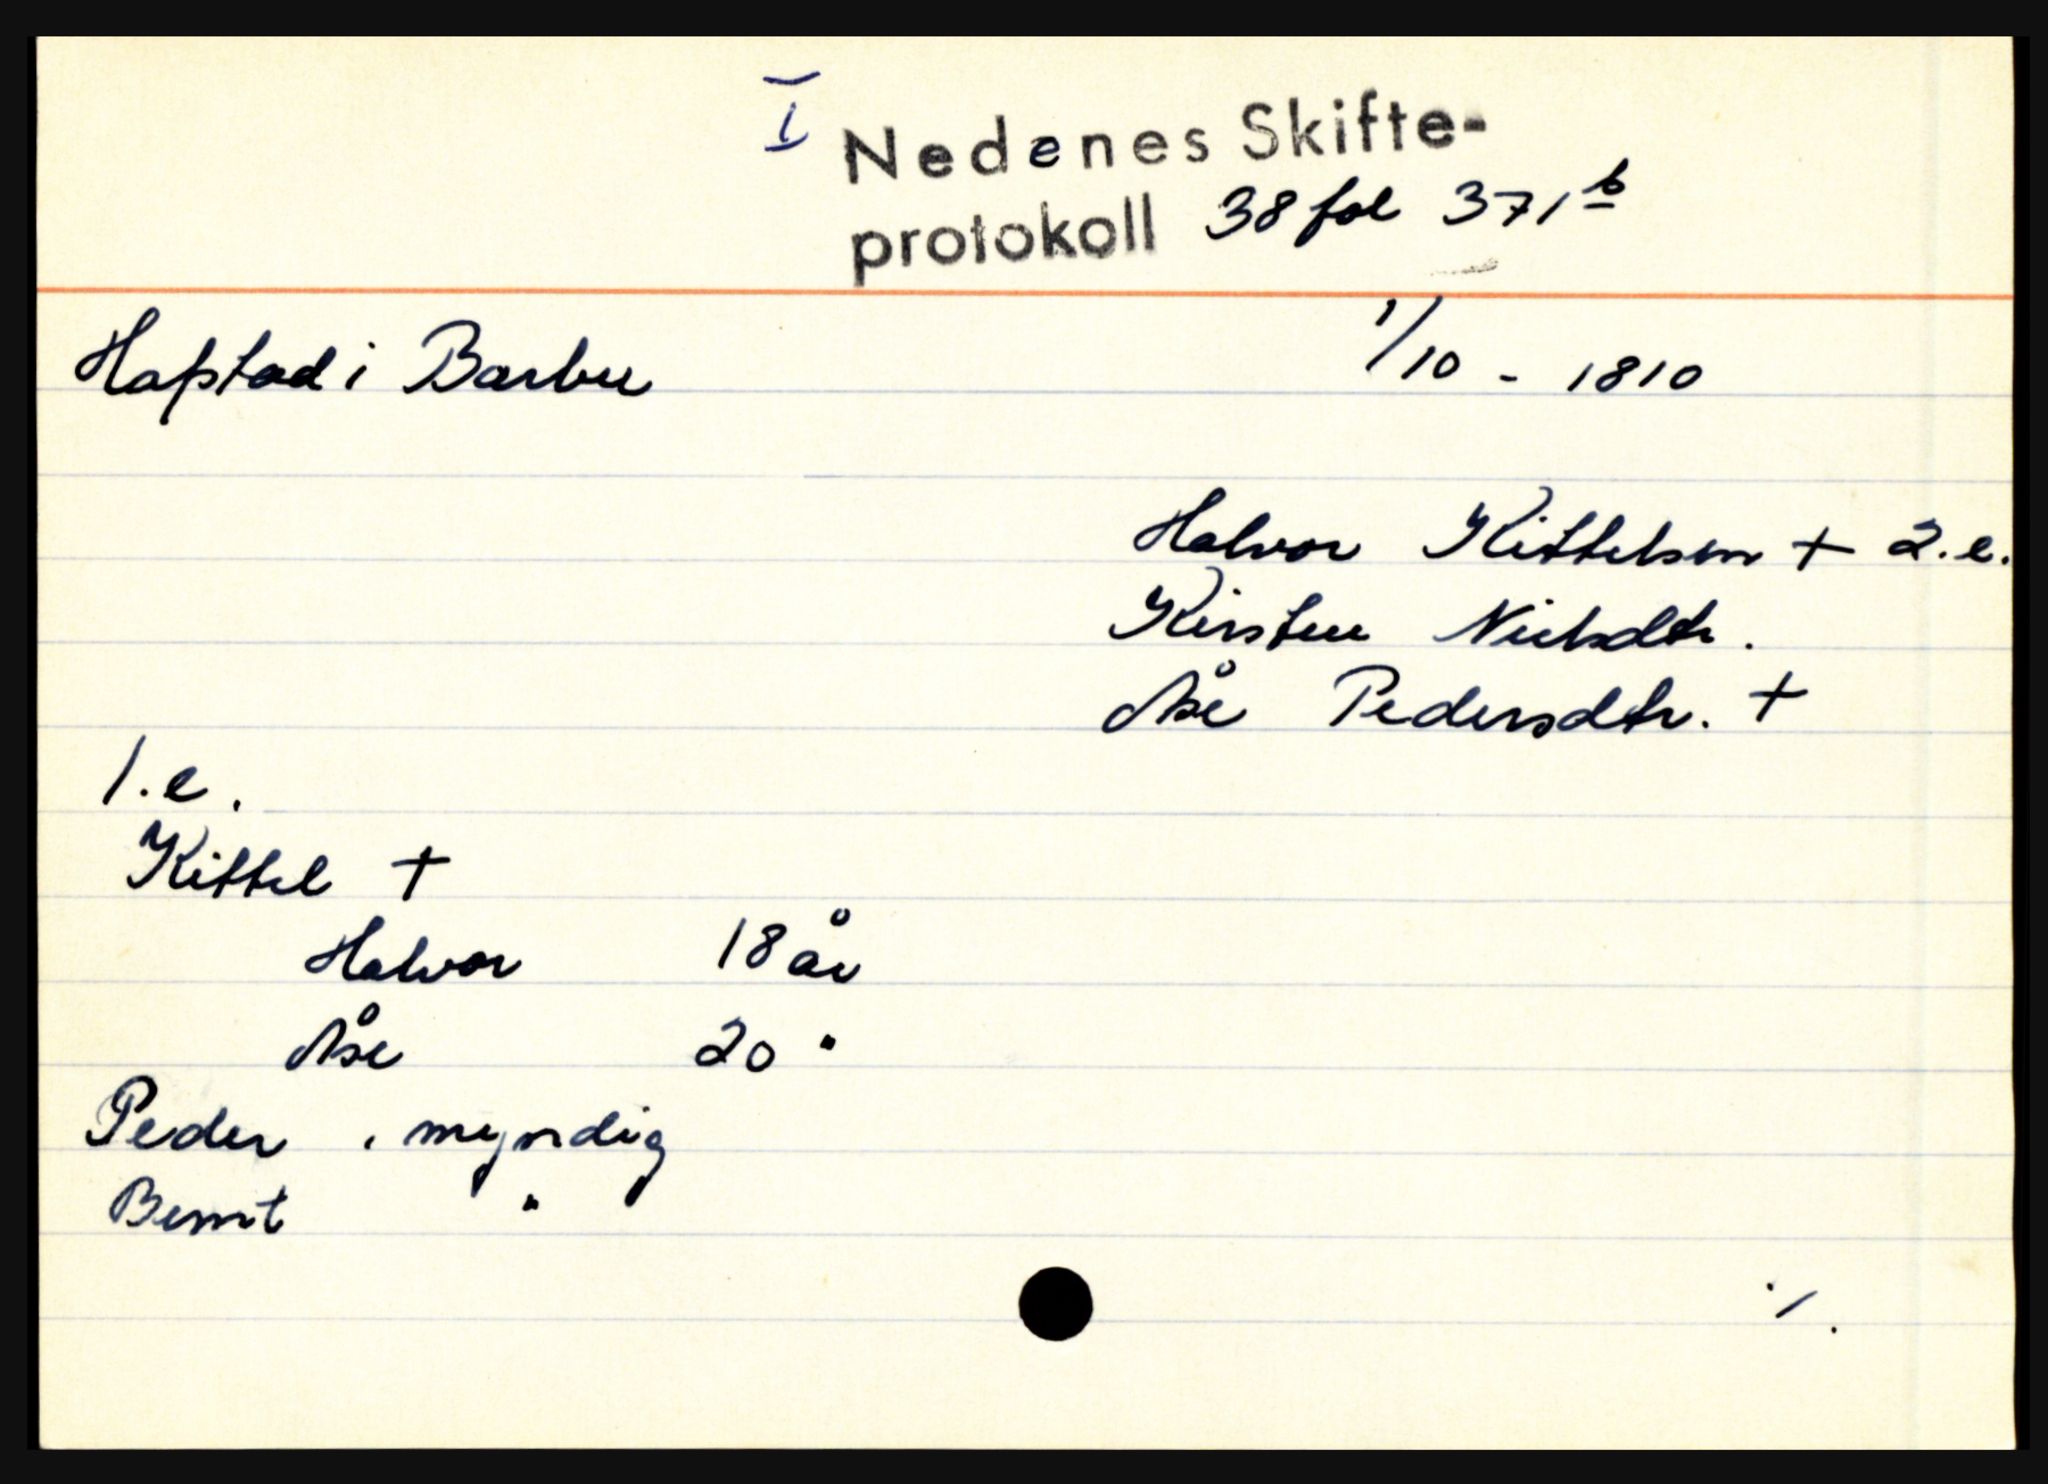 I
Nedenes Skifte-
protokoll 38 fol 371b
Haſstad i Barbu 1/10 - 1810
Halvor Kittelsen + 2.e.
Kirsten Nielsdtr.
Åse Pedersdtr. +
1.e.
Kittel +
Halvor 18 år
Åse 20 "
Peder , myndig
Bernt "
./.